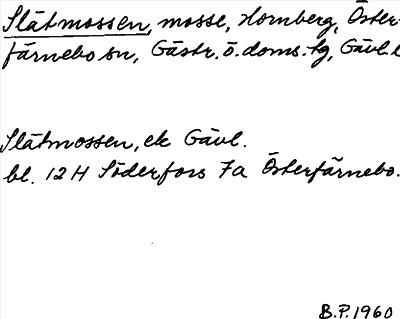 Slätmossen, mosse, Hornberg, Öster-
färnebo sn, Gästr. ö. doms. tg, Gävl. l
Slätmossen, ek Gävl.
bl. 12 H Söderfors 7a Österfärnebo.
B.P. 1960